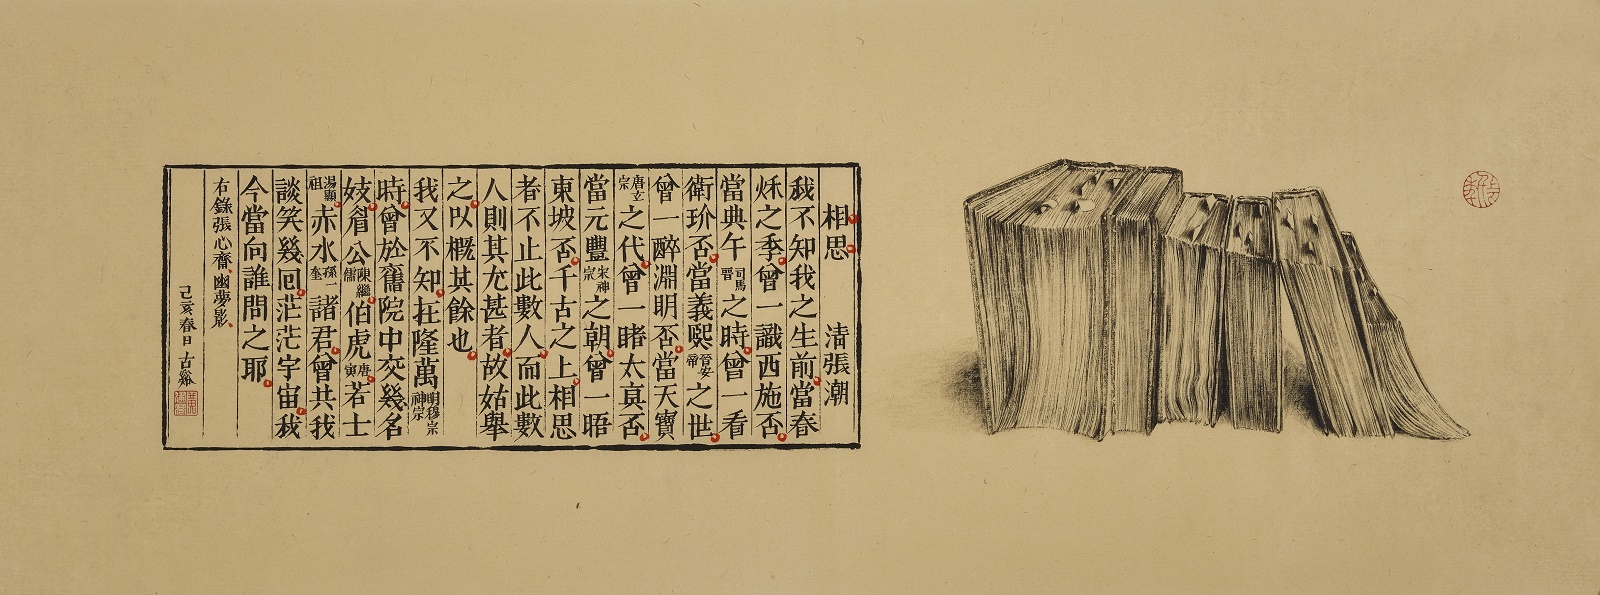 相思 清張潮
我不知我之生前當春
秌之季曾一識西施否
當典午司馬晉之時曾一看
衛玠否當義熙晉安帝之世
曾一醉淵明否當天寶
唐玄宗之代曾一睹太真否
當元豐宋神宗之朝曾一晤
東坡否千古之上相思
者不止此數人而此數
人則其尤甚者故姑舉
之以概其餘也
我又不知在隆萬明穆宗神宗
時曾於舊院中交幾名
妓眉公陳繼儒伯虎唐寅若士
湯顯祖赤水孫一奎諸君曾共我
談笑幾回茫茫宇宙我
今當向誰問之耶
右錄張心齋幽夢影
己亥春日古谿